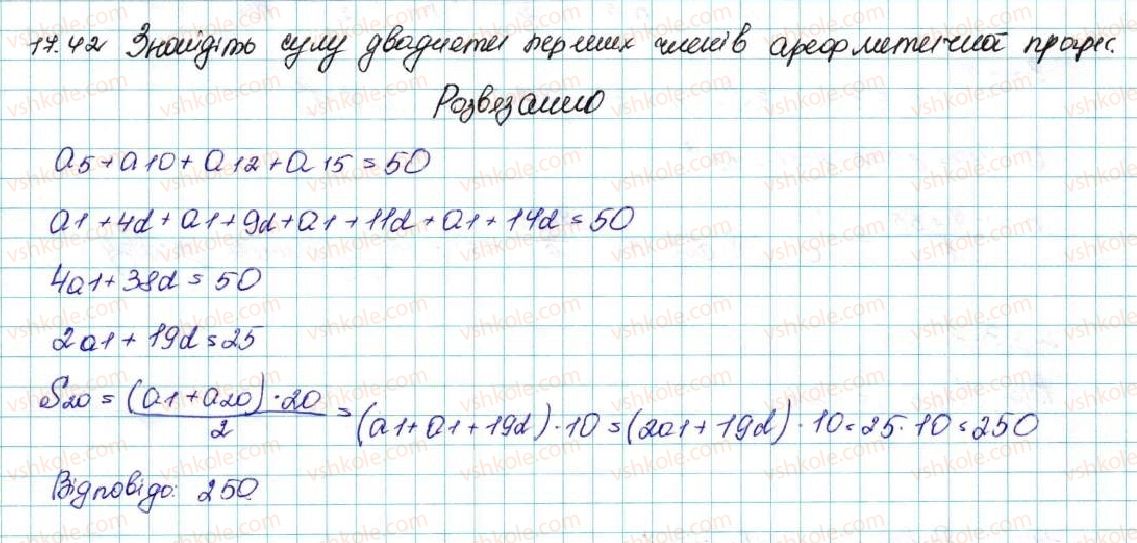 17.42 Знайдіть суму двадцяти перших членів арефметичної прогрес.
Розвязанно
a5 + a10 + a12 + a15 = 50
a1 + 4d + a1 + 9d + a1 + 11d + a1 + 14d = 50
4a1 + 38d = 50
2a1 + 19d = 25
S20 = (a1 + a20) · 20 / 2 = (a1 + a1 + 19d) · 10 = (2a1 + 19d) · 10 = 25 · 10 = 250
Відповідь: 250
vshkole.com